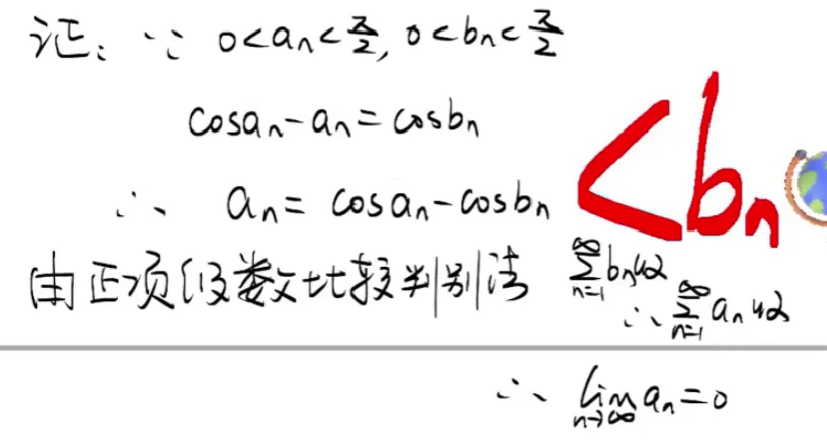 证: ∵ 0<aₙ<π/2, 0<bₙ<π/2
cosaₙ-aₙ=cosbₙ
∴ aₙ= cosaₙ-cosbₙ <bₙ
由正项级数比较判别法 ∑_{n=1}^{∞} bₙ收敛
∴ ∑_{n=1}^{∞} aₙ收敛
∴ lim_{n→∞} aₙ=0